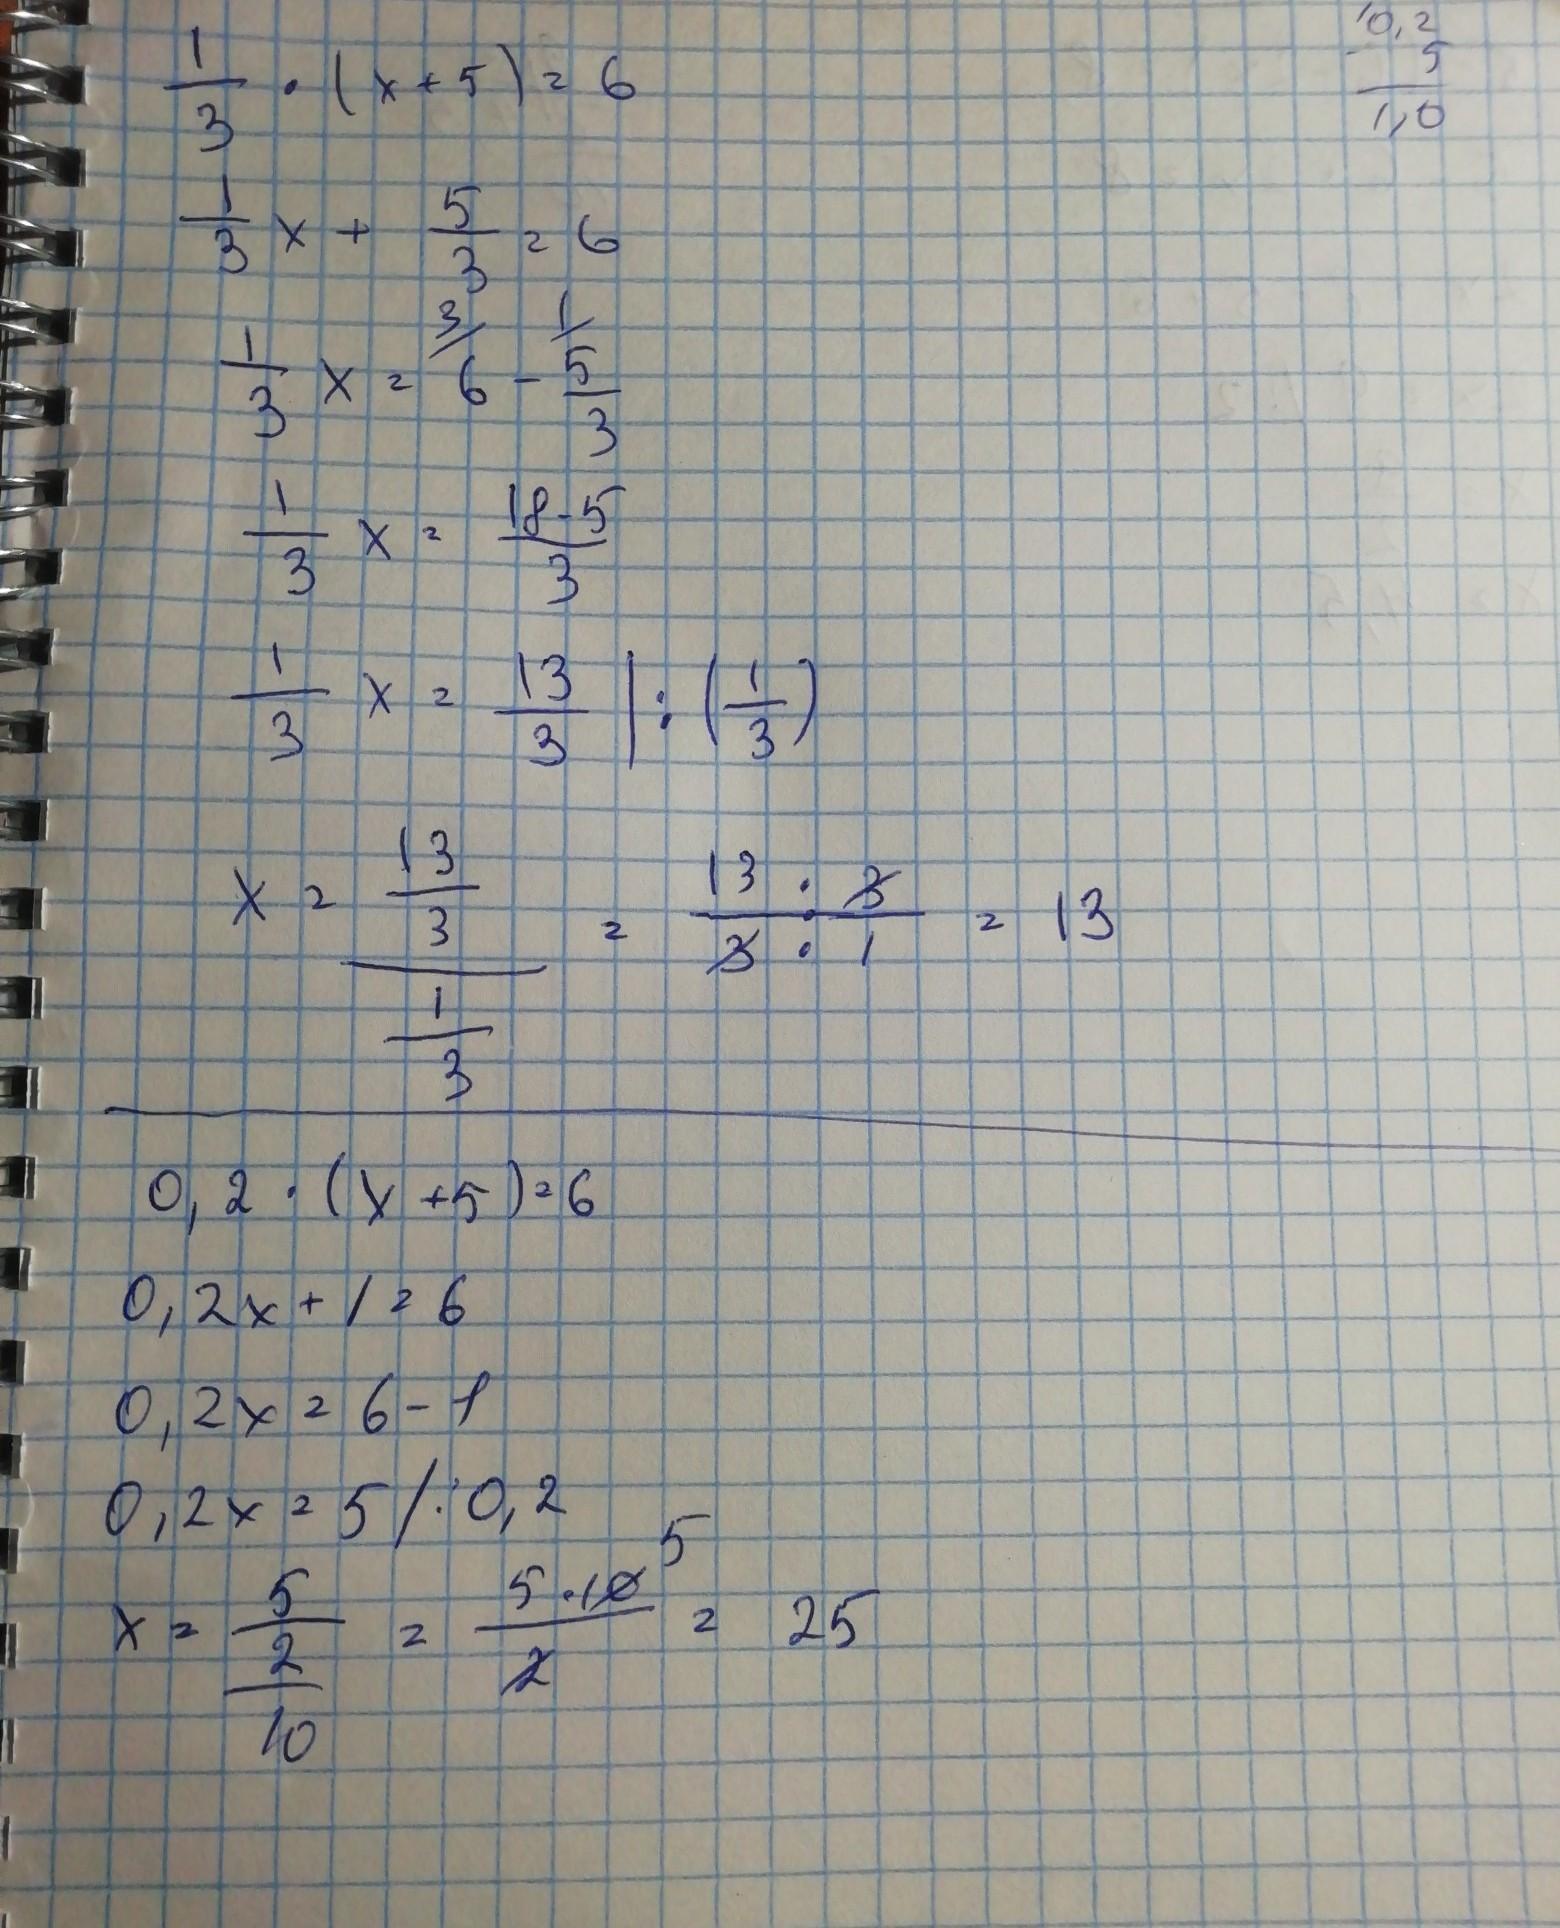 1/3 · (x + 5) = 6
0,2
5
1,0
1/3 x + 5/3 = 6
1/3 x = 3/ 6 - 1/ 5/3
1/3 x = 18-5/3
1/3 x = 13/3 | : (1/3)
x = 13/3 / 1/3 = 13 · 3 / 3 · 1 = 13
0,2 · (x + 5) = 6
0,2x + 1 = 6
0,2x = 6 - 1
0,2x = 5 / : 0,2
x = 5 / 2/10 = 5 · 10 5 / 2 = 25